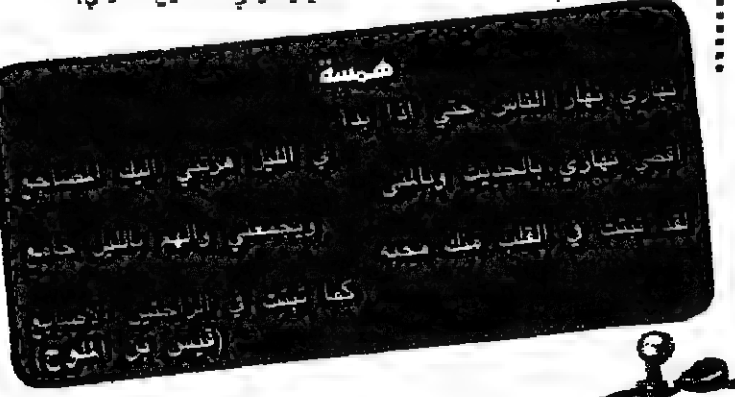 همسة
نهاري نهار الناس حتي إذا بدا
لي الليل هزتني اليك المضاجع
أقضي نهاري بالحديث وبالمنى
ويجمعني والهم بالليل جامع
لقد ثبتت في القلب منك محبه
كما ثبتت في الراحتين الاصابع
(قيس بن الملوح)